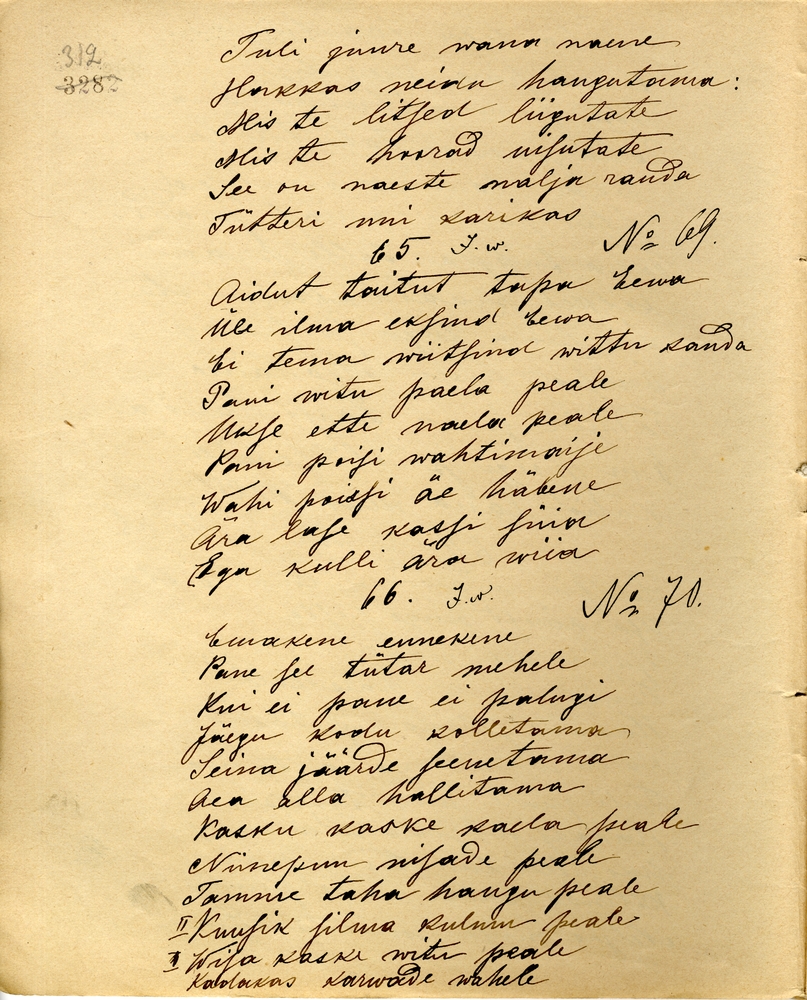 312
3282
Tuli juure wana naene
Hakkas neidu haugutama:
Mis te litsed liigutate
Mis te hoorad nisutate
See on naeste nalja rauda
Tütteri nni karikas
65. J. w. No 69.
Aidut taitut tapa Eewa
Üle ilma eksind Eewa
Ei tema wiitsind wittu kanda
Pani witu paela peale
Ukse ette naela peale
Pani poisi wahtimaije
Wahi poissi äe häbene
Ära lase kassi süia
Ega kulli ära wiia
66. J. w. No 70.
Emakene ennekene
Pane see tütar mehele
Kui ei pane ei palugi
Jäegu kodu kolletama
Seina jäärde seenetama
Aea alla hallitama
Kasku kaske kaela peale
Niinepuu nisade peale
Tamme taha haugu peale
II Kuusik silma kulmu peale
II Wisa kaske witu peale
Kadakas karwade wahele